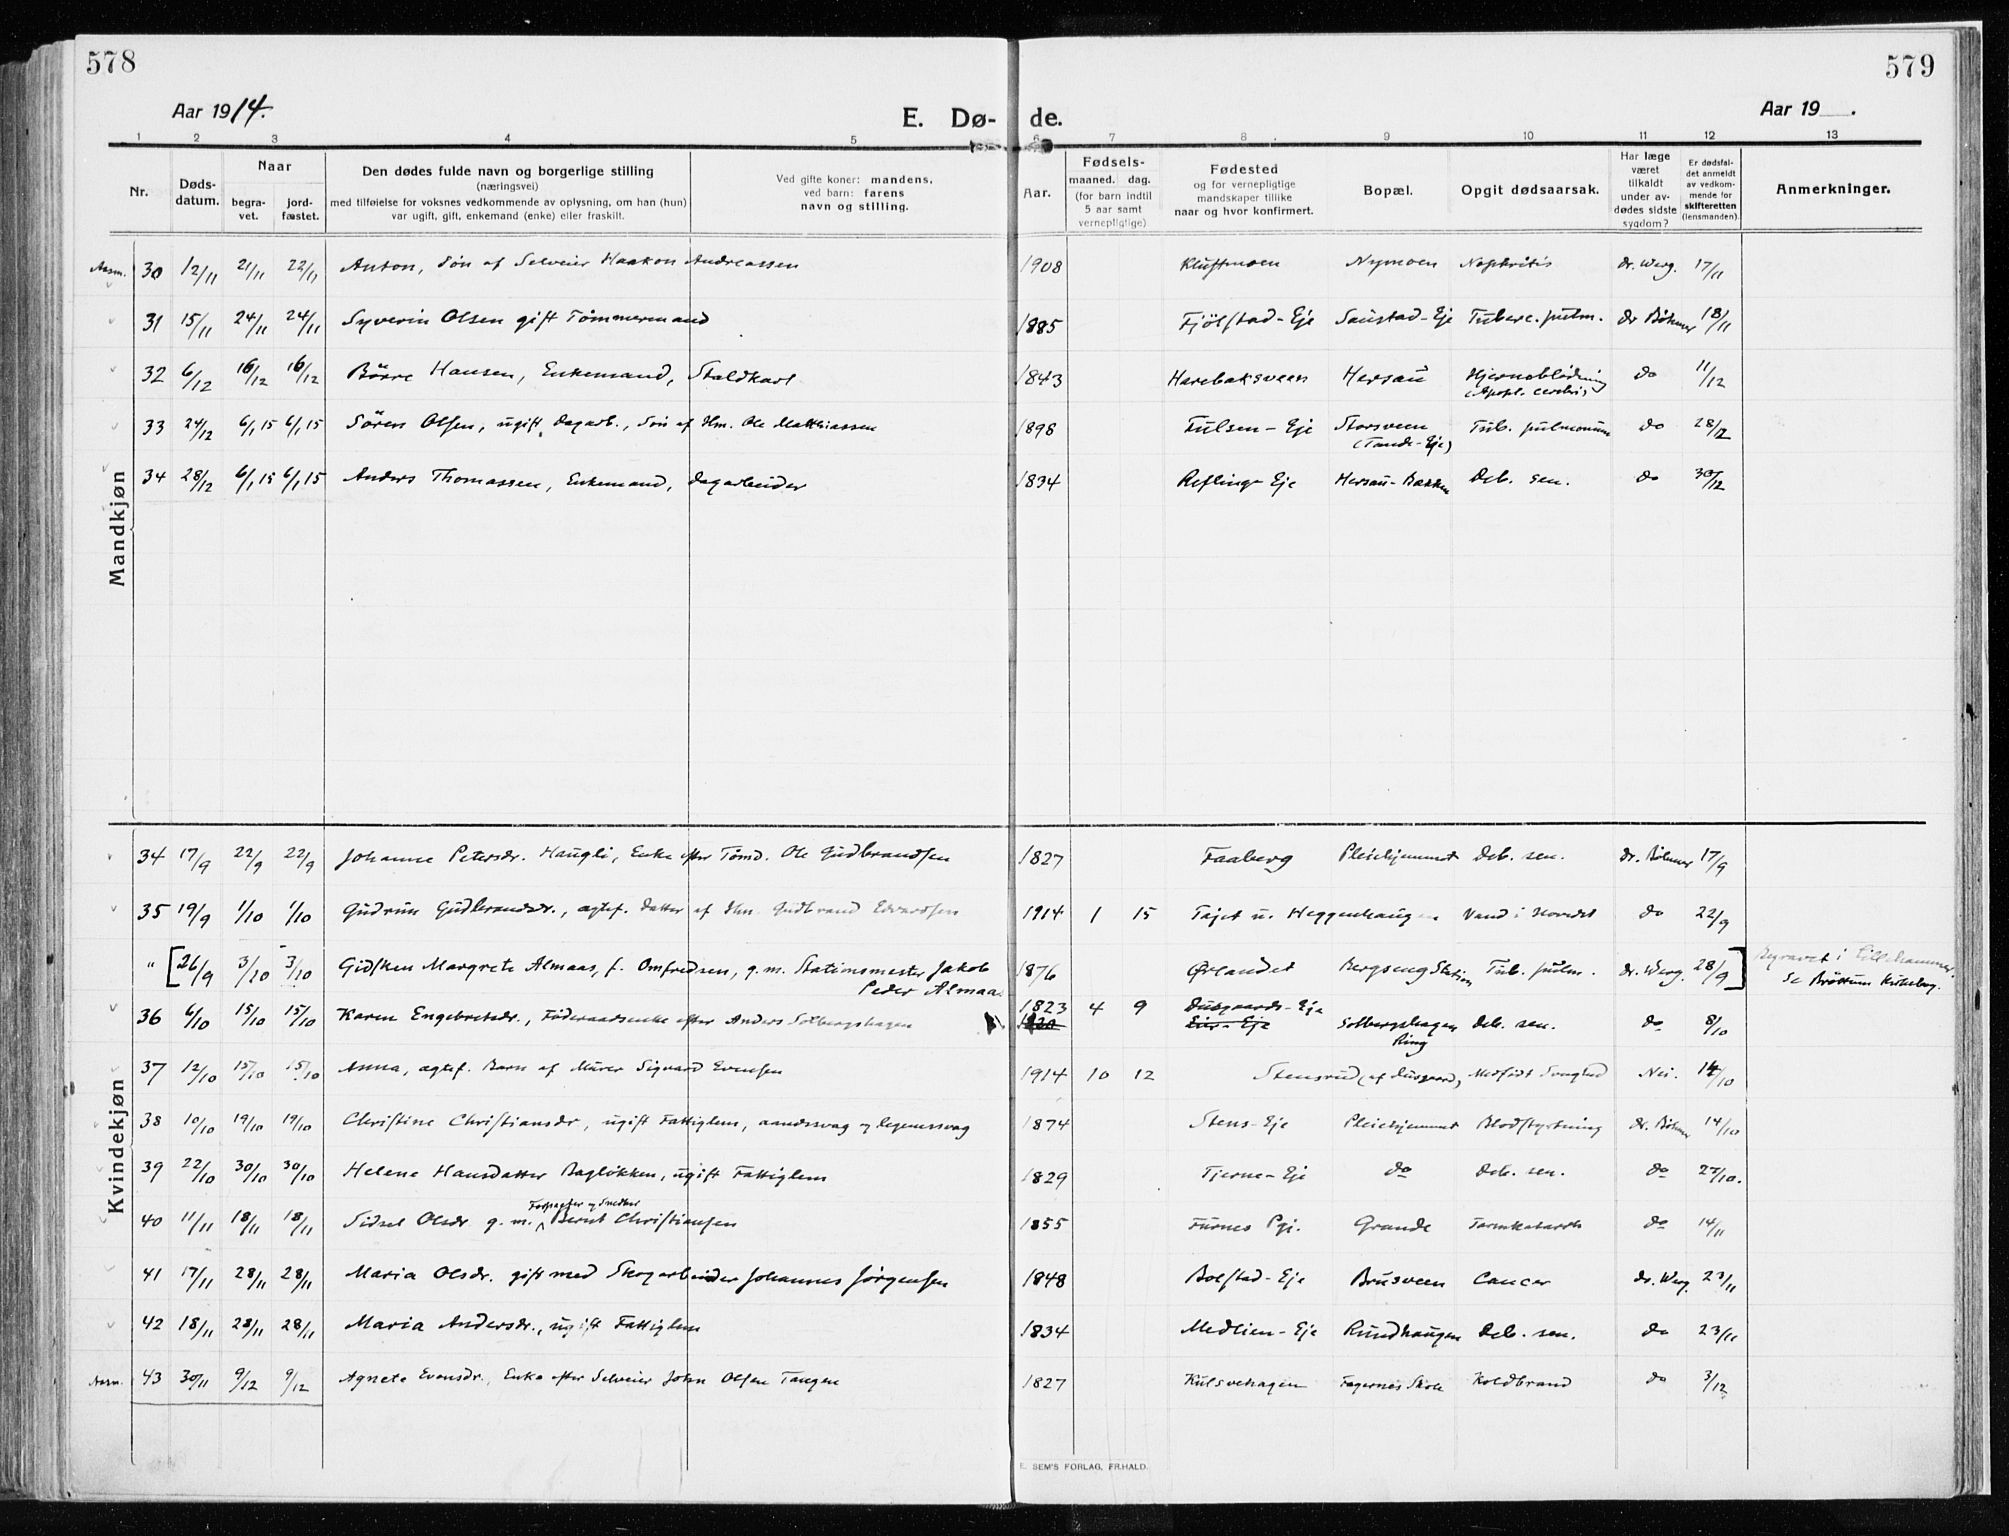 578
579
Aar 1914.
E. Dø-
de.
Aar 19 .
1 2 3 4 5 6 7 8 9 10 11 12 13
Nr.
Døds-datum.
Naar
begra-vet.
jord-fæstet.
Den dødes fulde navn og borgerlige stilling
(næringsvei)
med tilføielse for voksnes vedkommende av oplysning, om han (hun)
var ugift, gift, enkemand (enke) eller fraskilt.
Ved gifte koner: mandens,
ved barn: farens
navn og stilling.
Aar.
Fødsels-
maaned. dag.
(for barn indtil
5 aar samt
vernepligtige)
Fødested
og for vernepligtige
mandskaper tillike
naar og hvor konfirmert.
Bopæl.
Opgit dødsaarsak.
Har læge
været
tilkaldt
under av-
dødes sidste
sygdom?
Er dødsfal-
det anmeldt
av vedkom-
mende for
skifteretten
(lensmanden).
Anmerkninger.
Mandkjøn
30 12/11 21/11 22/11 Anton, Søn af Selveier Haakon Andreassen 1908 Kluftmoen Nymoen Nephritis dr. Werg. 17/11
31 15/11 24/11 24/11 Syverin Olsen gift Tømmermand 1885 Fjölstad-Eje Saustad-Eje Tuberc. pulm. dr Böhmer 18/11
32 6/12 16/12 16/12 Börre Hansen, Enkemand, Staldkarl 1843 Harebaksveen Hersau Hjerneblödning do 11/12
(Apopl. cerebri)
33 24/12 6/1 15 6/1 15 Sören Olsen, ugift Dagarb., Søn af Hm. Ole Matthiassen 1898 Fulsen-Eje Storsveen Tub. pulmonum do 28/12
(Tande-Eje)
34 28/12 6/1 15 6/1 15 Anders Thomassen, Enkemand, dagarbeider 1834 Reflinge Eje Hersau-Bakken Deb. sen. do 30/12
Kvindekjøn
34 17/9 22/9 22/9 Johanne Petersdr. Haugli, Enke efter Tømd. Ole Gudbrandsen 1827 Faaberg Pleiehjemmet Deb. sen. dr. Böhmer 17/9
35 19/9 1/10 1/10 Gudrun Gudbrandsdr., agtef. Datter af Hm. Gudbrand Edvardsen 1914 1 15 Tajet u. Heggenhaugen Vand i Hovedet do 22/9
" [26/9 3/10 3/10 Gidsken Margrete Almaas, f. Omfredsen, g.m. Stationsmester Jakob 1876 Ørlandet Bergseng Station Tub. pulm. dr. Werg. 28/9] Begravet i Lillehammer.
Peder Almaas Se Bröttum Kirkebog.
36 6/10 15/10 15/10 Karen Engebretsdr., Föderaadsenke efter Anders Solbergshagen 1823 4 9 Dusgaards-Eje Solbergshagen Deb. sen. do 8/10
Ring
37 12/10 15/10 15/10 Anna, agtef. Barn af Murer Sigvard Evensen 1914 10 12 Stensrud (af Dusgaard) Medfödt Svaghed Nei. 14/10
38 10/10 19/10 19/10 Christine Christiansdr, ugift Fattiglem, aandssvag og legemssvag 1874 Stens-Eje Pleiehjemmet Blodstyrtning dr. Böhmer 14/10
39 22/10 30/10 30/10 Helene Hansdatter Baglökken, ugift Fattiglem 1829 Tjerne-Eje do Deb. sen. do 27/10.
Forpagter og Snedker
40 11/11 18/11 18/11 Sidsel Olsdr. g.m. Bernt Christiansen 1855 Furnes Pgj. Grande Tarmkatarrh do 14/11
41 17/11 28/11 28/11 Maria Olsdr. gift med Skogarbeider Johannes Jörgensen 1848 Bolstad-Eje Brusveen Cancer dr. Werg. 23/11
42 18/11 28/11 28/11 Maria Andersdr., ugift Fattiglem 1834 Medlien-Eje Rundhaugen Deb. sen. do 23/11
43 30/11 9/12 9/12 Agnete Evensdr., Enke efter Selveier John Olsen Tangen 1827 Kulsvehagen Fagernes Skole Koldbrand do 3/12
E. SEM'S FORLAG, FR.HALD.